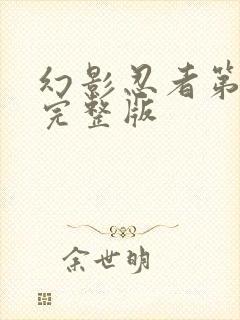 幻影忍者第
完整版
余世明